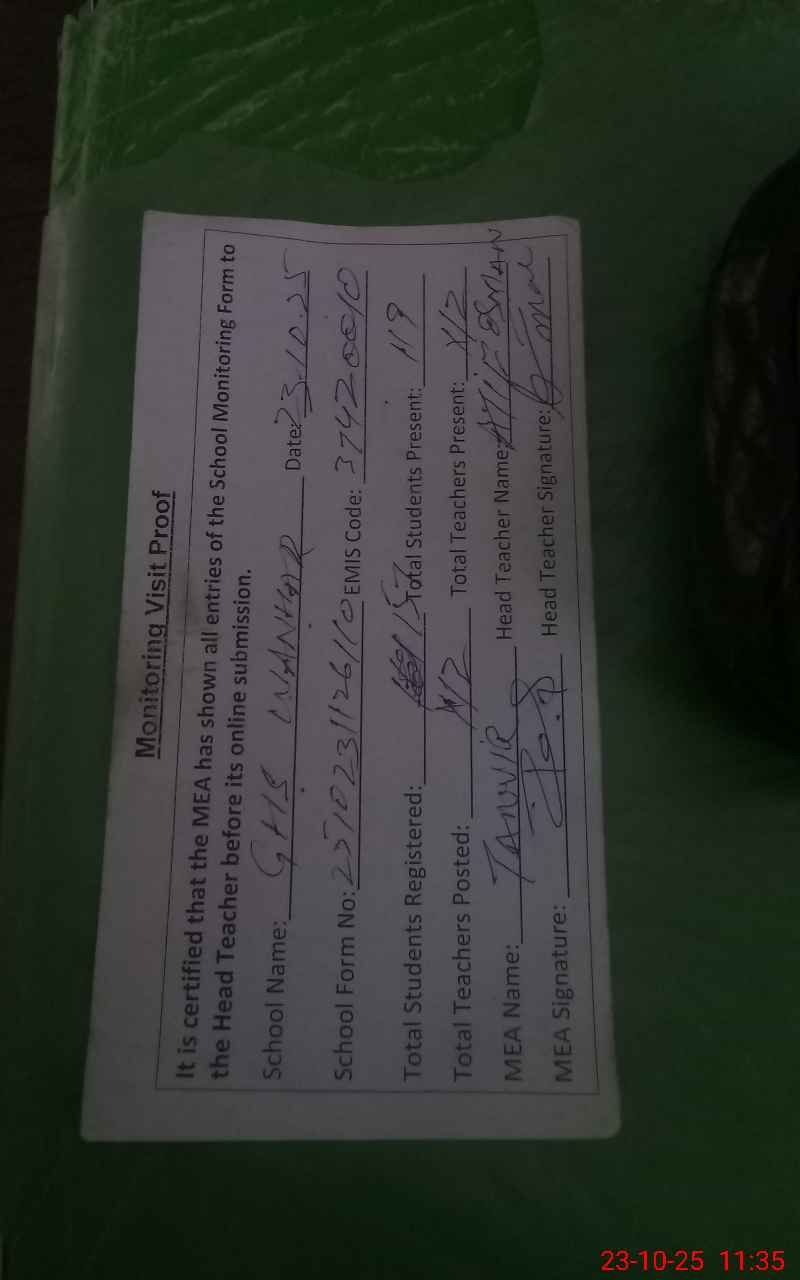 Monitoring Visit Proof
It is certified that the MEA has shown all entries of the School Monitoring Form to
the Head Teacher before its online submission.
School Name: GHS Date: 23.10.25
School Form No: 2510231126110 EMIS Code: 37420010
Total Students Registered: 157 Total Students Present: 119
Total Teachers Posted: Total Teachers Present:
MEA Name: TANVIR Head Teacher Name: ATIF USMAN
MEA Signature: Head Teacher Signature:
23-10-25 11:35